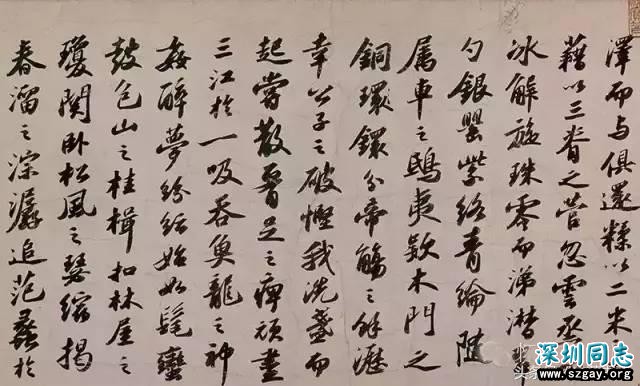 澤而与俱還糅以二米
藉以三脊之菅忽雲烝
冰解旋珠零而涕潸翠
勺銀罌紫絡青綸随
属車之鴟夷款木門之
銅環鐶分帝觴之餘瀝
幸公子之破慳我洗盞而
起嘗散腰足之痺頑盡
三江於一吸吞魚龍之神
姦醉夢紛紜始如髦蠻
鼓包山之桂楫扣林屋之
瓊関卧松風之瑟縮揭
春溜之淙潺追范蠡於
深圳同志
www.szgay.org